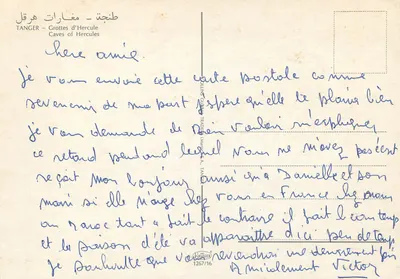 طنجة - مغارات هرقل
TANGER - Grottes d'Hercule
Caves of Hercules
chere amie.
je vous envoie cette carte postale comme
sevenenir de ma part j'spere qu'elle te plaira bien
je vous demande de bien vouloir m'expliquer
ce retard pendant lequel vous ne m'avez pas écrit
reçoit mon bonjour ainsi qu'a Danielle et son
mari si elle vous en France chez
au Maroc tout a fait le contraire il fait le beau temps
et la saison d'été va apparaître d'ici peu de temps
je souhaite que vous reviendrai une deuxièment
Amicalement Victor
1267/16